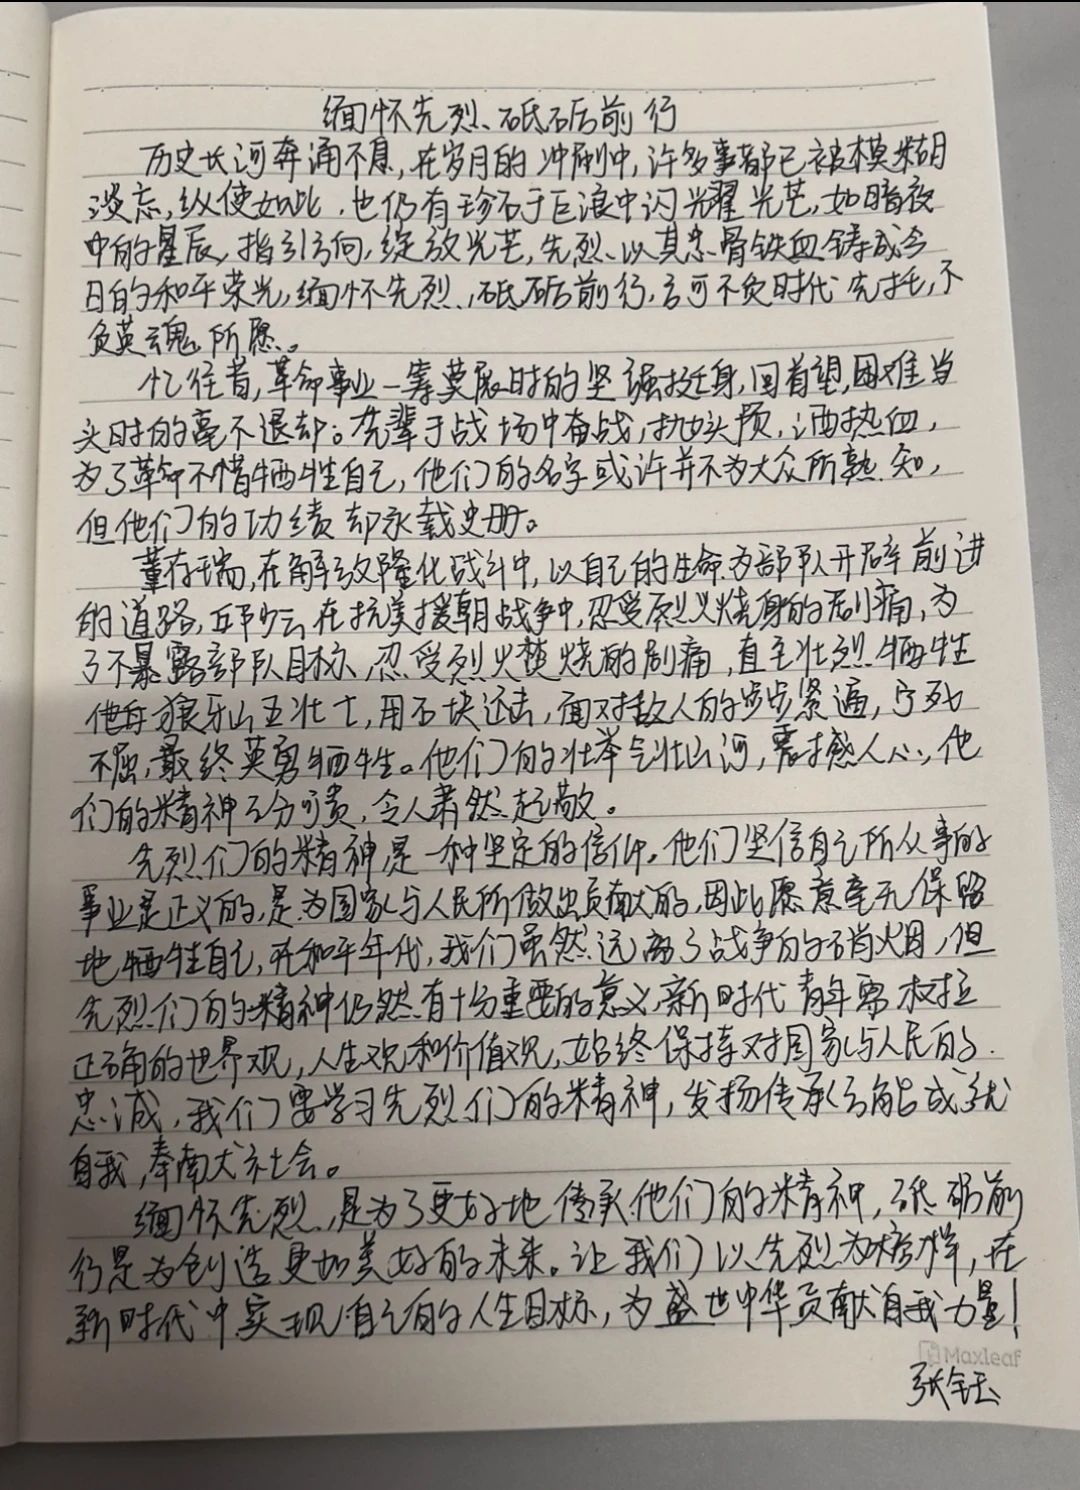 缅怀先烈、砥砺前行
历史长河奔涌不息,在岁月的冲刷中,许多事都已被模糊
淡忘,纵使如此,也仍有珍石于巨浪中闪耀光芒,如暗夜
中的星辰,指引方向,绽放光芒,先烈、以其忠骨铁血铸成今
日的和平荣光,缅怀先烈、砥砺前行,方可不负时代先托,不
负英魂所愿。
忆往昔,革命事业一筹莫展时的坚强挺身,回首望,困难当
头时的毫不退却。先辈于战场中奋战,抛头颅,洒热血,
为了革命不惜牺牲自己,他们的名字或许并不为大众所熟知,
但他们的功绩却永载史册。
董存瑞,在解放隆化战斗中,以自己的生命为部队开辟前进
的道路,邱少云在抗美援朝战争中,忍受烈火烧身的剧痛,为
了不暴露部队目标,忍受烈火焚烧的剧痛,直至壮烈牺牲
狼牙山五壮士,用石块还击,面对敌人的步步紧逼,宁死
不屈,最终英勇牺牲。他们的壮举气壮山河,震撼人心,他
们的精神十分可贵,令人肃然起敬。
先烈们的精神是一种坚定的信仰。他们坚信自己所从事的
事业是正义的,是为国家与人民所做出贡献的,因此愿意毫无保留
地牺牲自己,在和平年代,我们虽然远离了战争的硝火,但
先烈们的精神仍然有十分重要的意义,新时代青年需树立
正确的世界观,人生观和价值观,始终保持对国家与人民的
忠诚,我们要学习先烈们的精神,发扬传承方能成就
自我,奉献社会。
缅怀先烈,是为了更好地传承他们的精神,砥砺前
行是为创造更加美好的未来。让我们以先烈为榜样,在
新时代中实现自己的人生目标,为盛世中华贡献自我力量!
Maxleaf
张钰